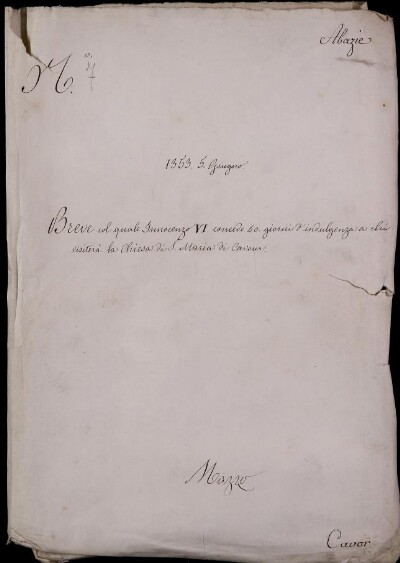 Abazie
N. 7
1353. 5. Giugno
Breve col quale Innocenzo VI concede 40. giorni d'indulgenza a chi
visiterà la Chiesa di S. Maria di Cavour.
Mazzo
Cavor